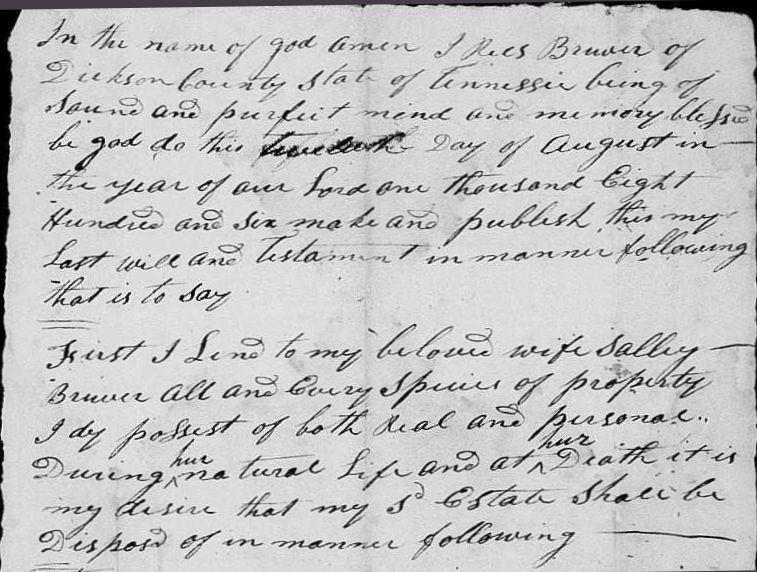 In the name of god amen I Rees Bruver of
Dickson County State of Tennessie being of
Sound and purfict mind and memory blessed
be god do this twelveth Day of August in
the year of our Lord one thousand Eight
Hundred and six make and publish this my
Last will and Testament in manner following
that is to say
First I Lend to my beloved wife Salley
Bruver all and Every Spicies of property
I dy possest of both Real and personal
During hur natural Life and at hur Death it is
my desire that my Sd Estate Shall be
Disposd of in manner following